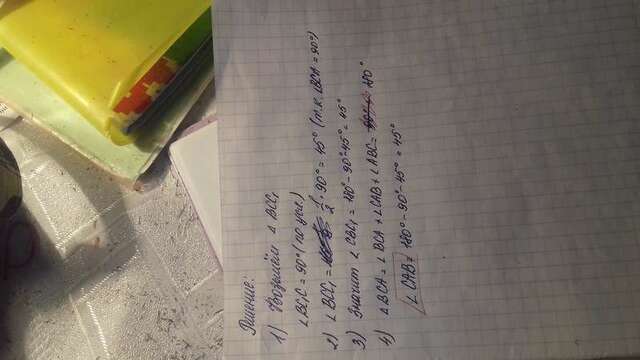 Решение:
1) Возьмём △ BCC₁
∠BC₁C = 90° (по усл.)
2) ∠ BCC₁ = 1/2 · 90° = 45° (т.к. ∠BCA = 90°)
3) Значит ∠ CBC₁ = 180° - 90° - 45° = 45°
4) ∠BCA = ∠ BCA + ∠CAB + ∠ABC = 180°
∠ CAB = 180° - 90° - 45° = 45°